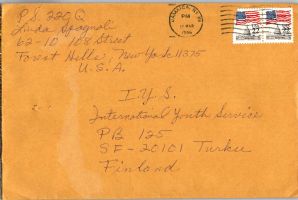 P.S. 220 Q
Linda Spagnoli
62-10 108 Street
Forest Hills, New York 11375
U.S.A.
JAMAICA, NY
PM
1986
22
22
I.Y.S.
International Youth Service
PB 125
SF-20101 Turku
Finland